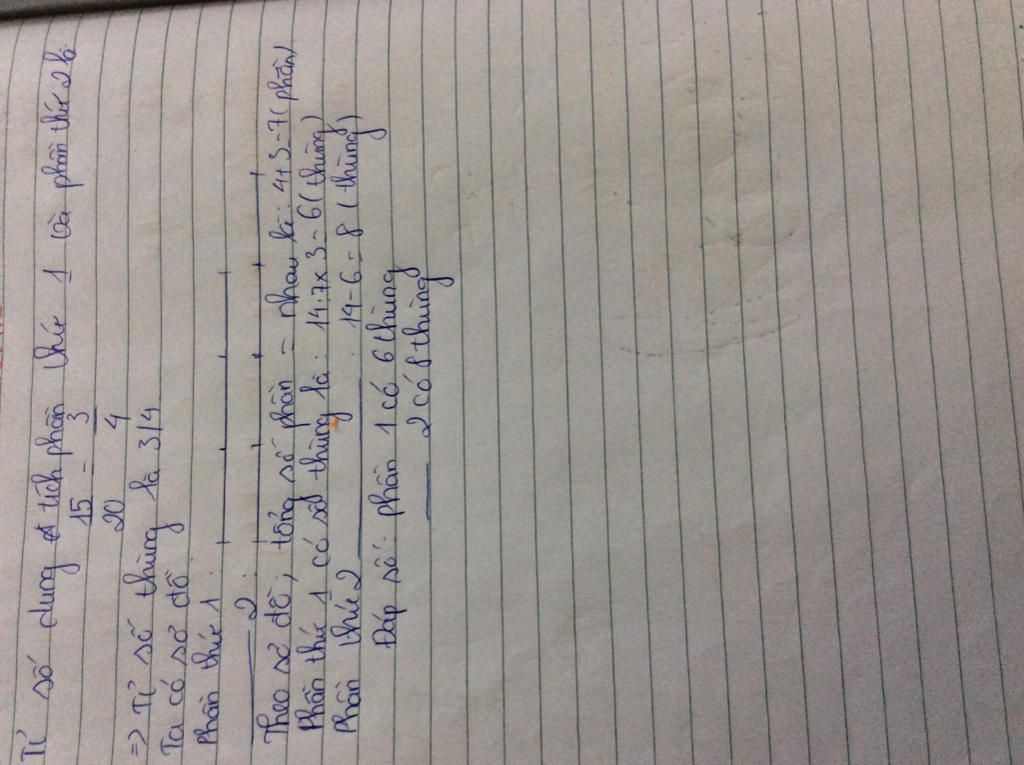 Tỉ số dung tích phần thứ 1 và phần thứ 2 là
15 = 3
20 4
=> Tỉ số thùng là 3/4
Ta có sơ đồ
Phần thứ 1 :
____ 2 :
Theo sơ đồ, tổng số phần = nhau là : 4+3=7 (phần)
Phần thứ 1 có số thùng là : 14:7x3=6 (thùng)
Phần thứ 2 ____ : 14-6=8 (thùng)
Đáp số : phần 1 có 6 thùng
____ 2 có 8 thùng